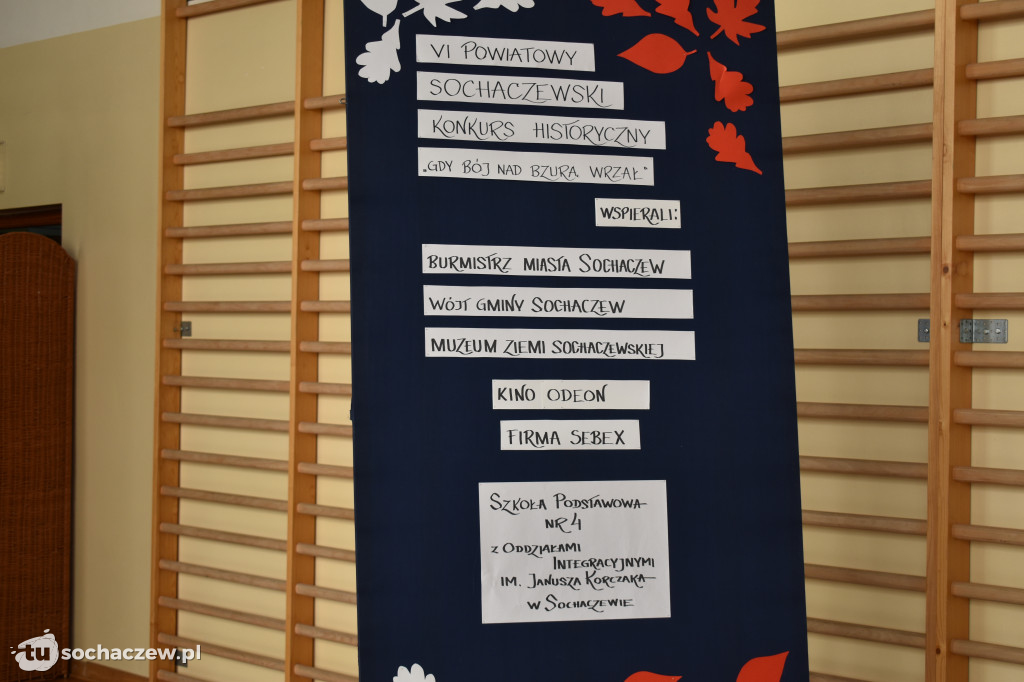 VI POWIATOWY
SOCHACZEWSKI
KONKURS HISTORYCZNY
„GDY BÓJ NAD BZURĄ WRZAŁ"
WSPIERALI:
BURMISTRZ MIASTA SOCHACZEW
WÓJT GMINY SOCHACZEW
MUZEUM ZIEMI SOCHACZEWSKIEJ
KINO ODEON
FIRMA SEBEX
SZKOŁA PODSTAWOWA
NR 4
z ODDZIAŁAMI
INTEGRACYJNYMI
IM. JANUSZA KORCZAKA
W SOCHACZEWIE
tusochaczew.pl